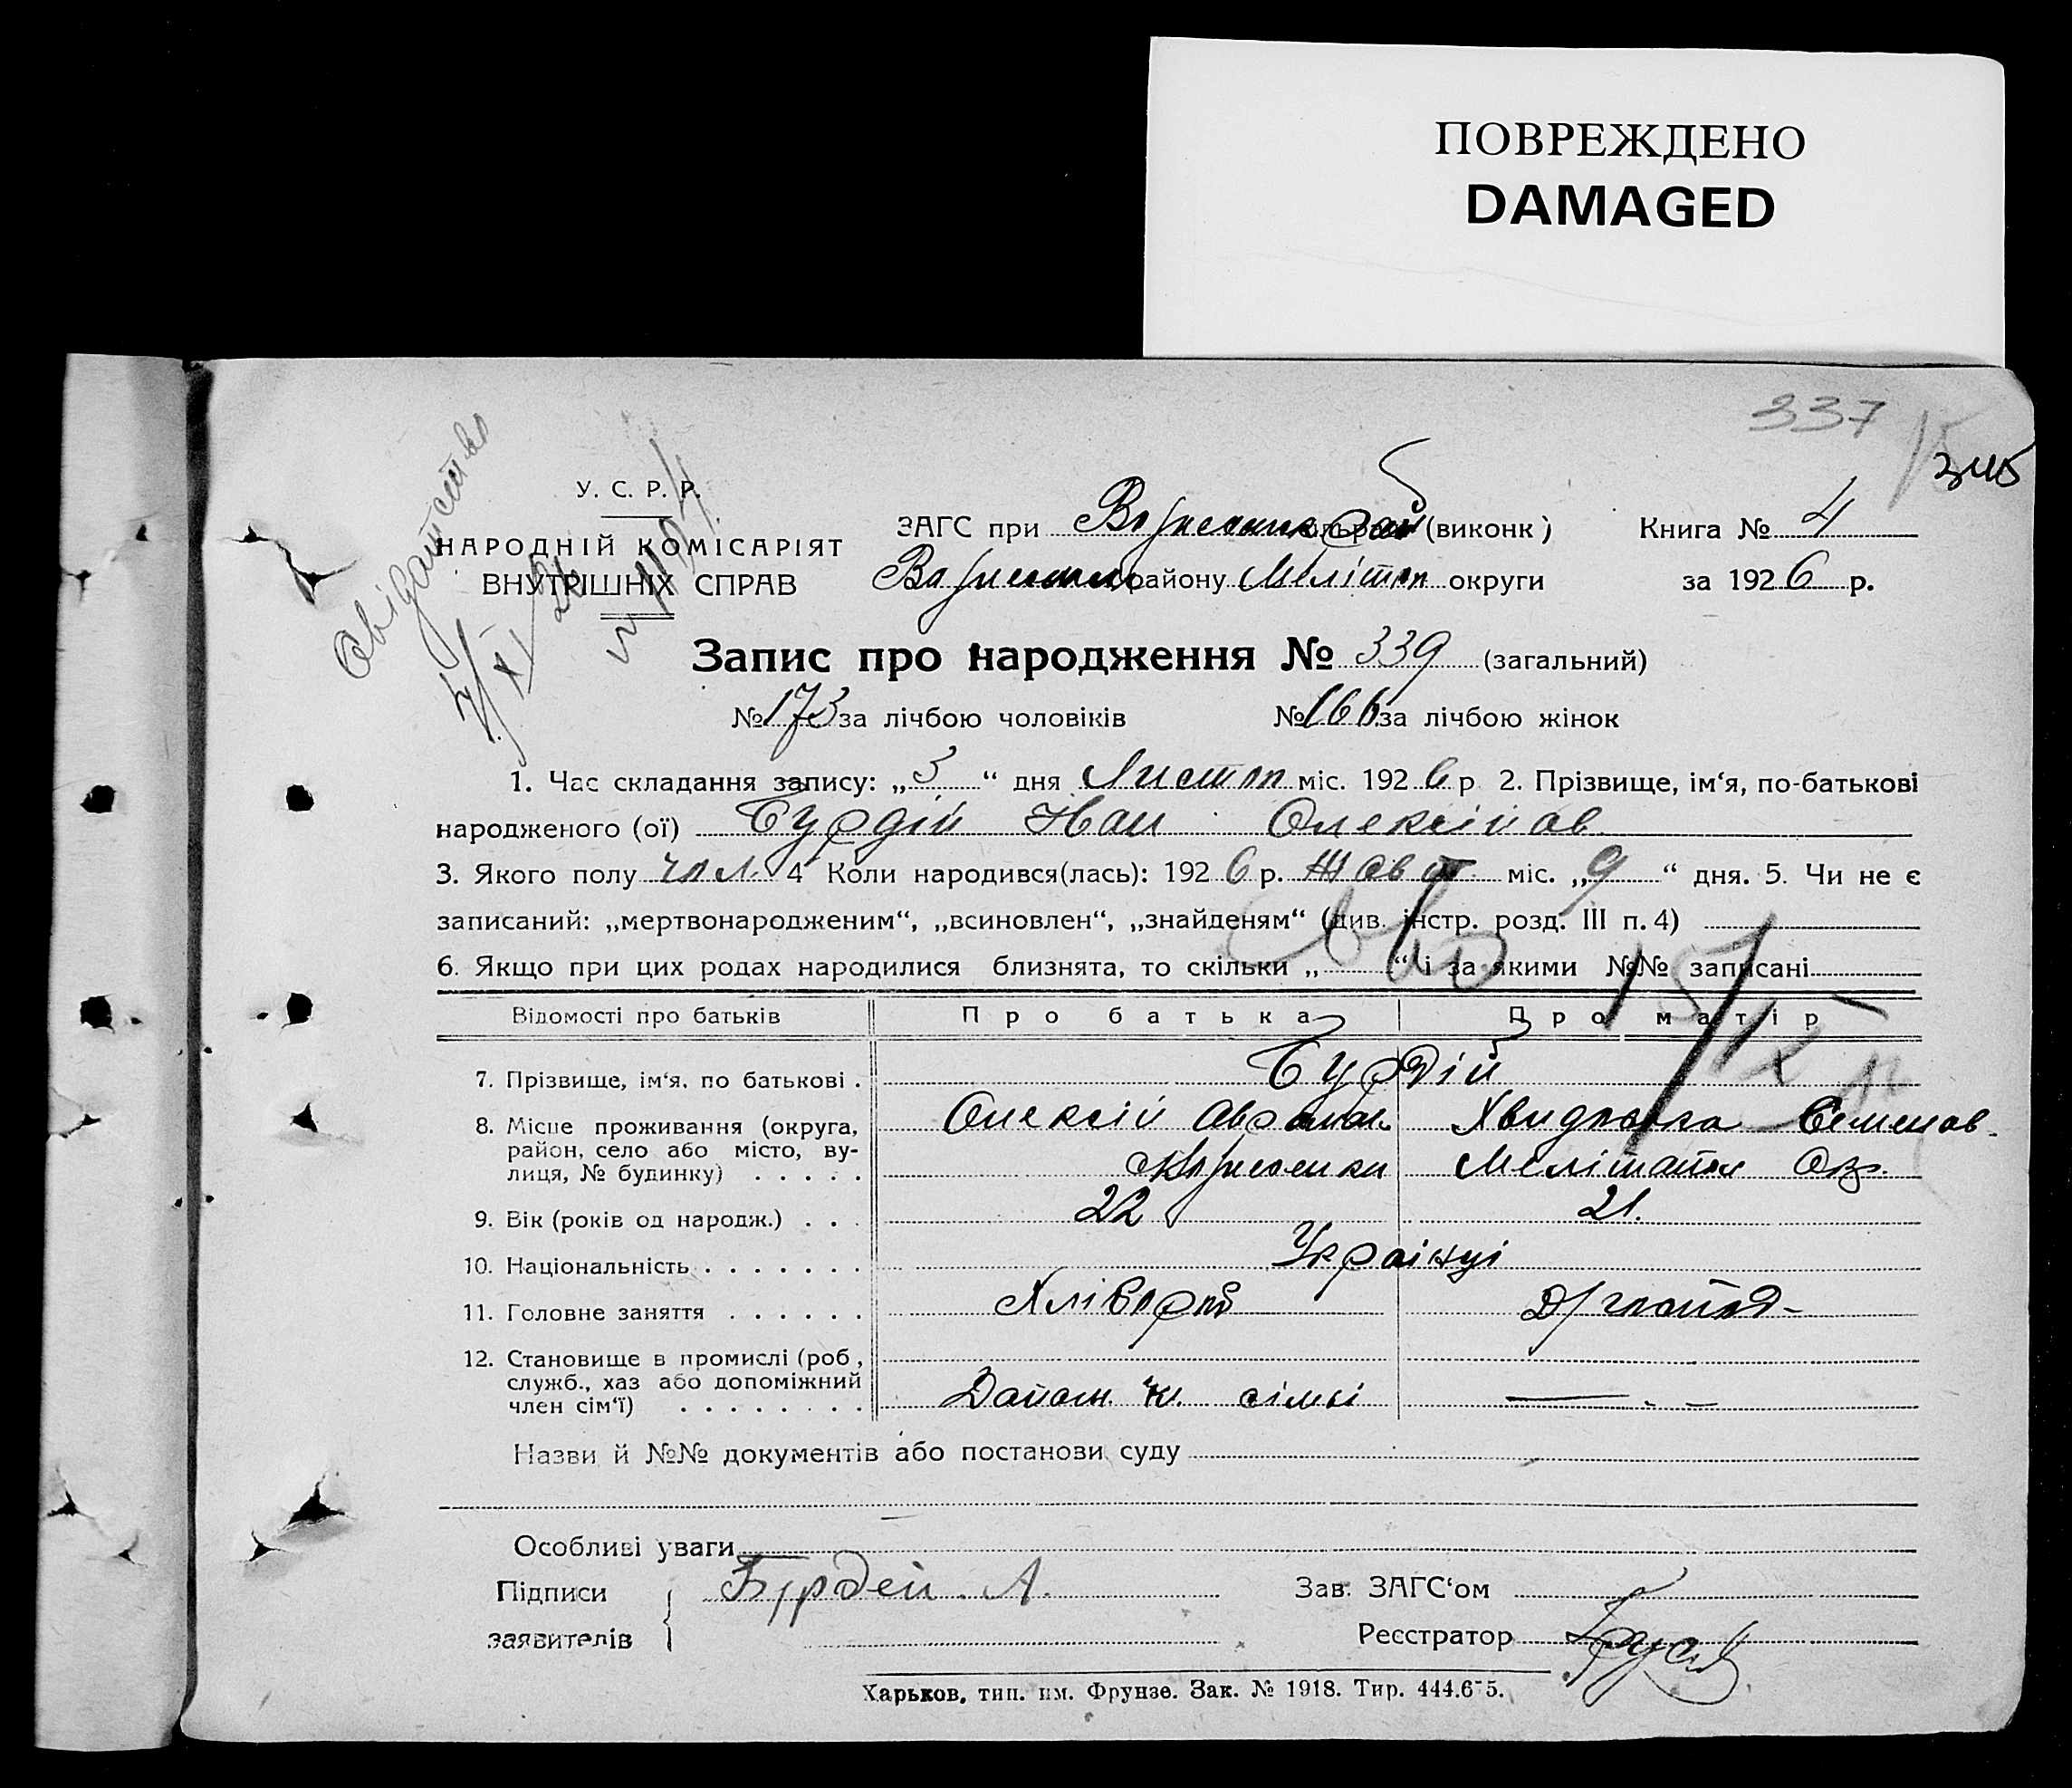 ПОВРЕЖДЕНО
DAMAGED
337
345
Свідоцтво
У. С. Р. Р.
НАРОДНІЙ КОМІСАРІЯТ
ВНУТРІШНІХ СПРАВ
ЗАГС при (виконк)
Книга № 4
району Мелітоп округи
за 1926 р.
Запис про народження № 339 (загальний)
№ 173 за лічбою чоловіків № 166 за лічбою жінок
1. Час складання запису: „3“ дня Листоп міс. 1926 р 2. Прізвище, ім‘я, по-батькові
народженого (ої) Бурдій Іван Олексійов
3. Якого полу чол. 4 Коли народився(лась): 1926 р. Жовт міс. „9“ дня. 5. Чи не є
записаний: „мертвонародженим“, „всиновлен“, „знайденям“ (див. інстр. розд. III п. 4)
6. Якщо при цих родах народилися близнята, то скільки „ “ і за якими №№ записані
Відомості про батьків Про батька Про матір
7. Прізвище, ім‘я, по батькові . Бурдій
8. Місце проживання (округа, Олексій Аврам. Семенов.
район, село або місто, ву-
лиця, № будинку) . . . . . Ок.
9. Вік (років од народж.) . . . 22 21.
10. Національність . . . . . . . Українці
11. Головне заняття . . . . . . Хлібороб
12. Становище в промислі (роб.,
служб., хаз або допоміжний
член сім‘ї) . . . . . . . . сімьі
Назви й №№ документів або постанови суду
Особливі уваги
Підписи Бурдей. А. Зав. ЗАГС‘ом
заявителів Реєстратор
Харьков, тип. им. Фрунзе. Зак. № 1918. Тир. 444.6-5.